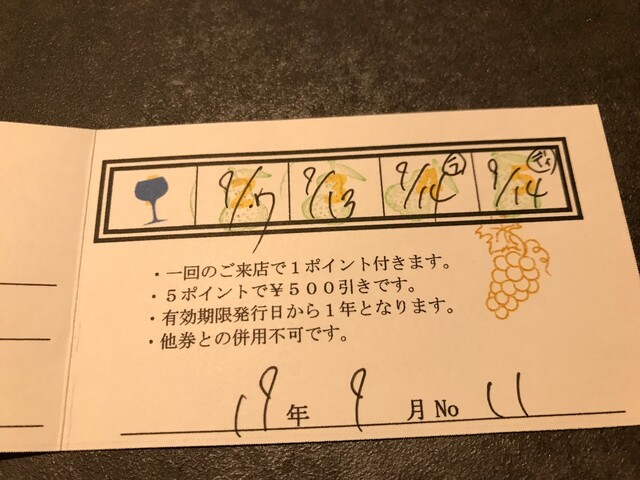 9/7 9/13 9/14 ラ 9/14 ディ
・一回のご来店で１ポイント付きます。
・５ポイントで￥５００引きです。
・有効期限発行日から１年となります。
・他券との併用不可です。
19年 9月 No 11